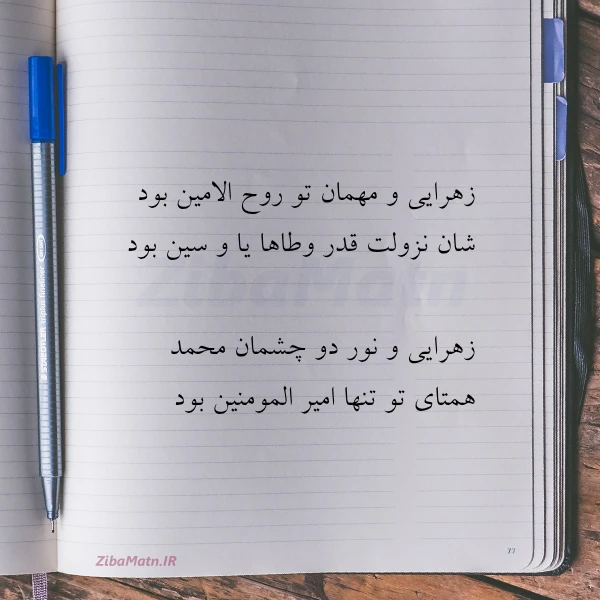 زهرایی و مهمان تو روح الامین بود
شان نزولت قدر وطاها یا و سین بود
ZibaMatn
زهرایی و نور دو چشمان محمد
همتای تو تنها امیر المومنین بود
77
ZibaMatn.IR
STAEDTLER triplus fineliner